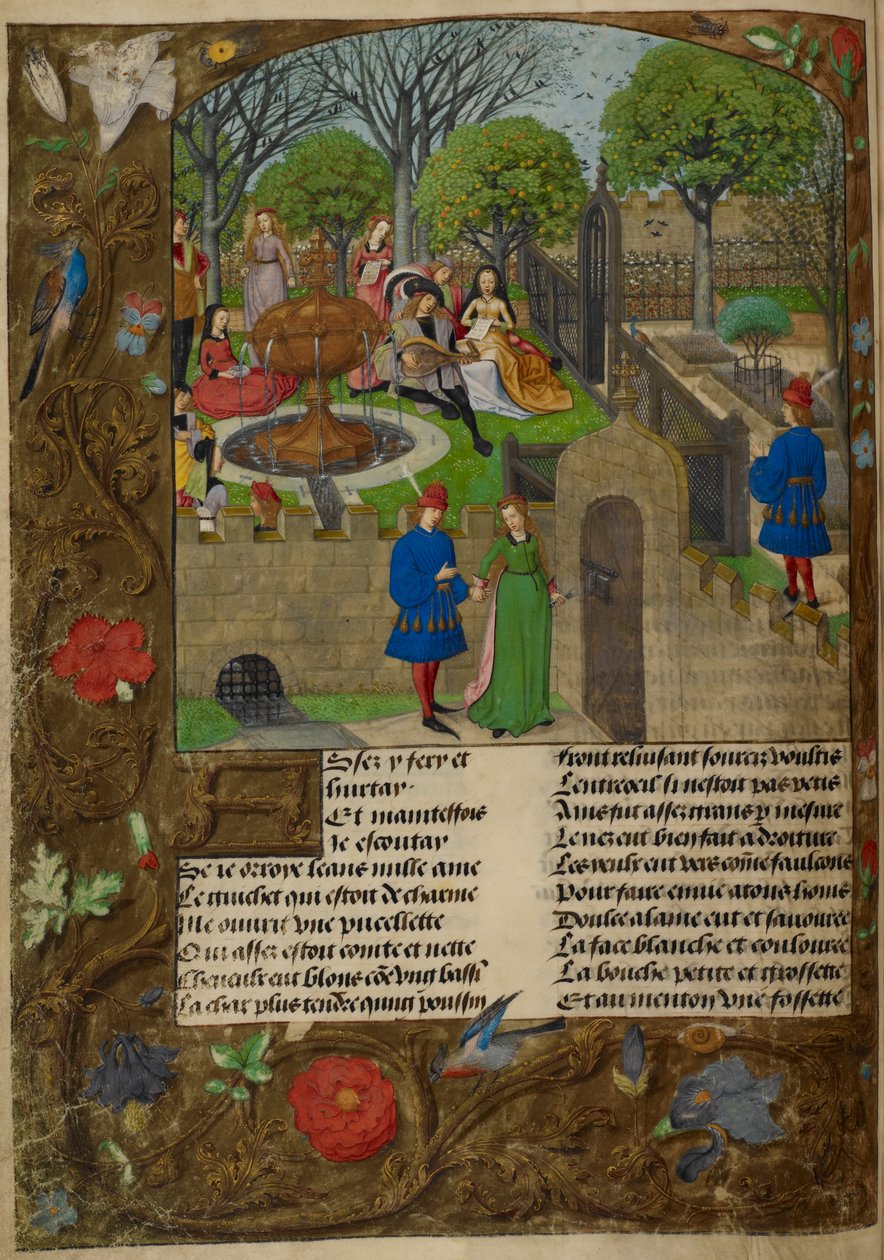 ASsez y fery et
hurtay.
Et maintesfois
Je escoutay
Se ie orroye leans nulle ame
Le guichet qui estoit de charme
Me ouurit vne pucellette
Qui assez estoit cointe et nette
Cheueulx eut blons cõe vng bassĩ
La char plus tendre qung poussin
Front reluisant sourcilz voultis
Lentroeil si nestoit pas petis
Ains fut assez grans ꝑ mesure
Le nez eut bien fait a droiture
Les yeulx eut vers cõme faulcons
Pour faire enuie a tous homs
Doulce alaine eut et sauouree
La face blanche et coulouree
La bouche petite et grossette
Et au menton vne fossette